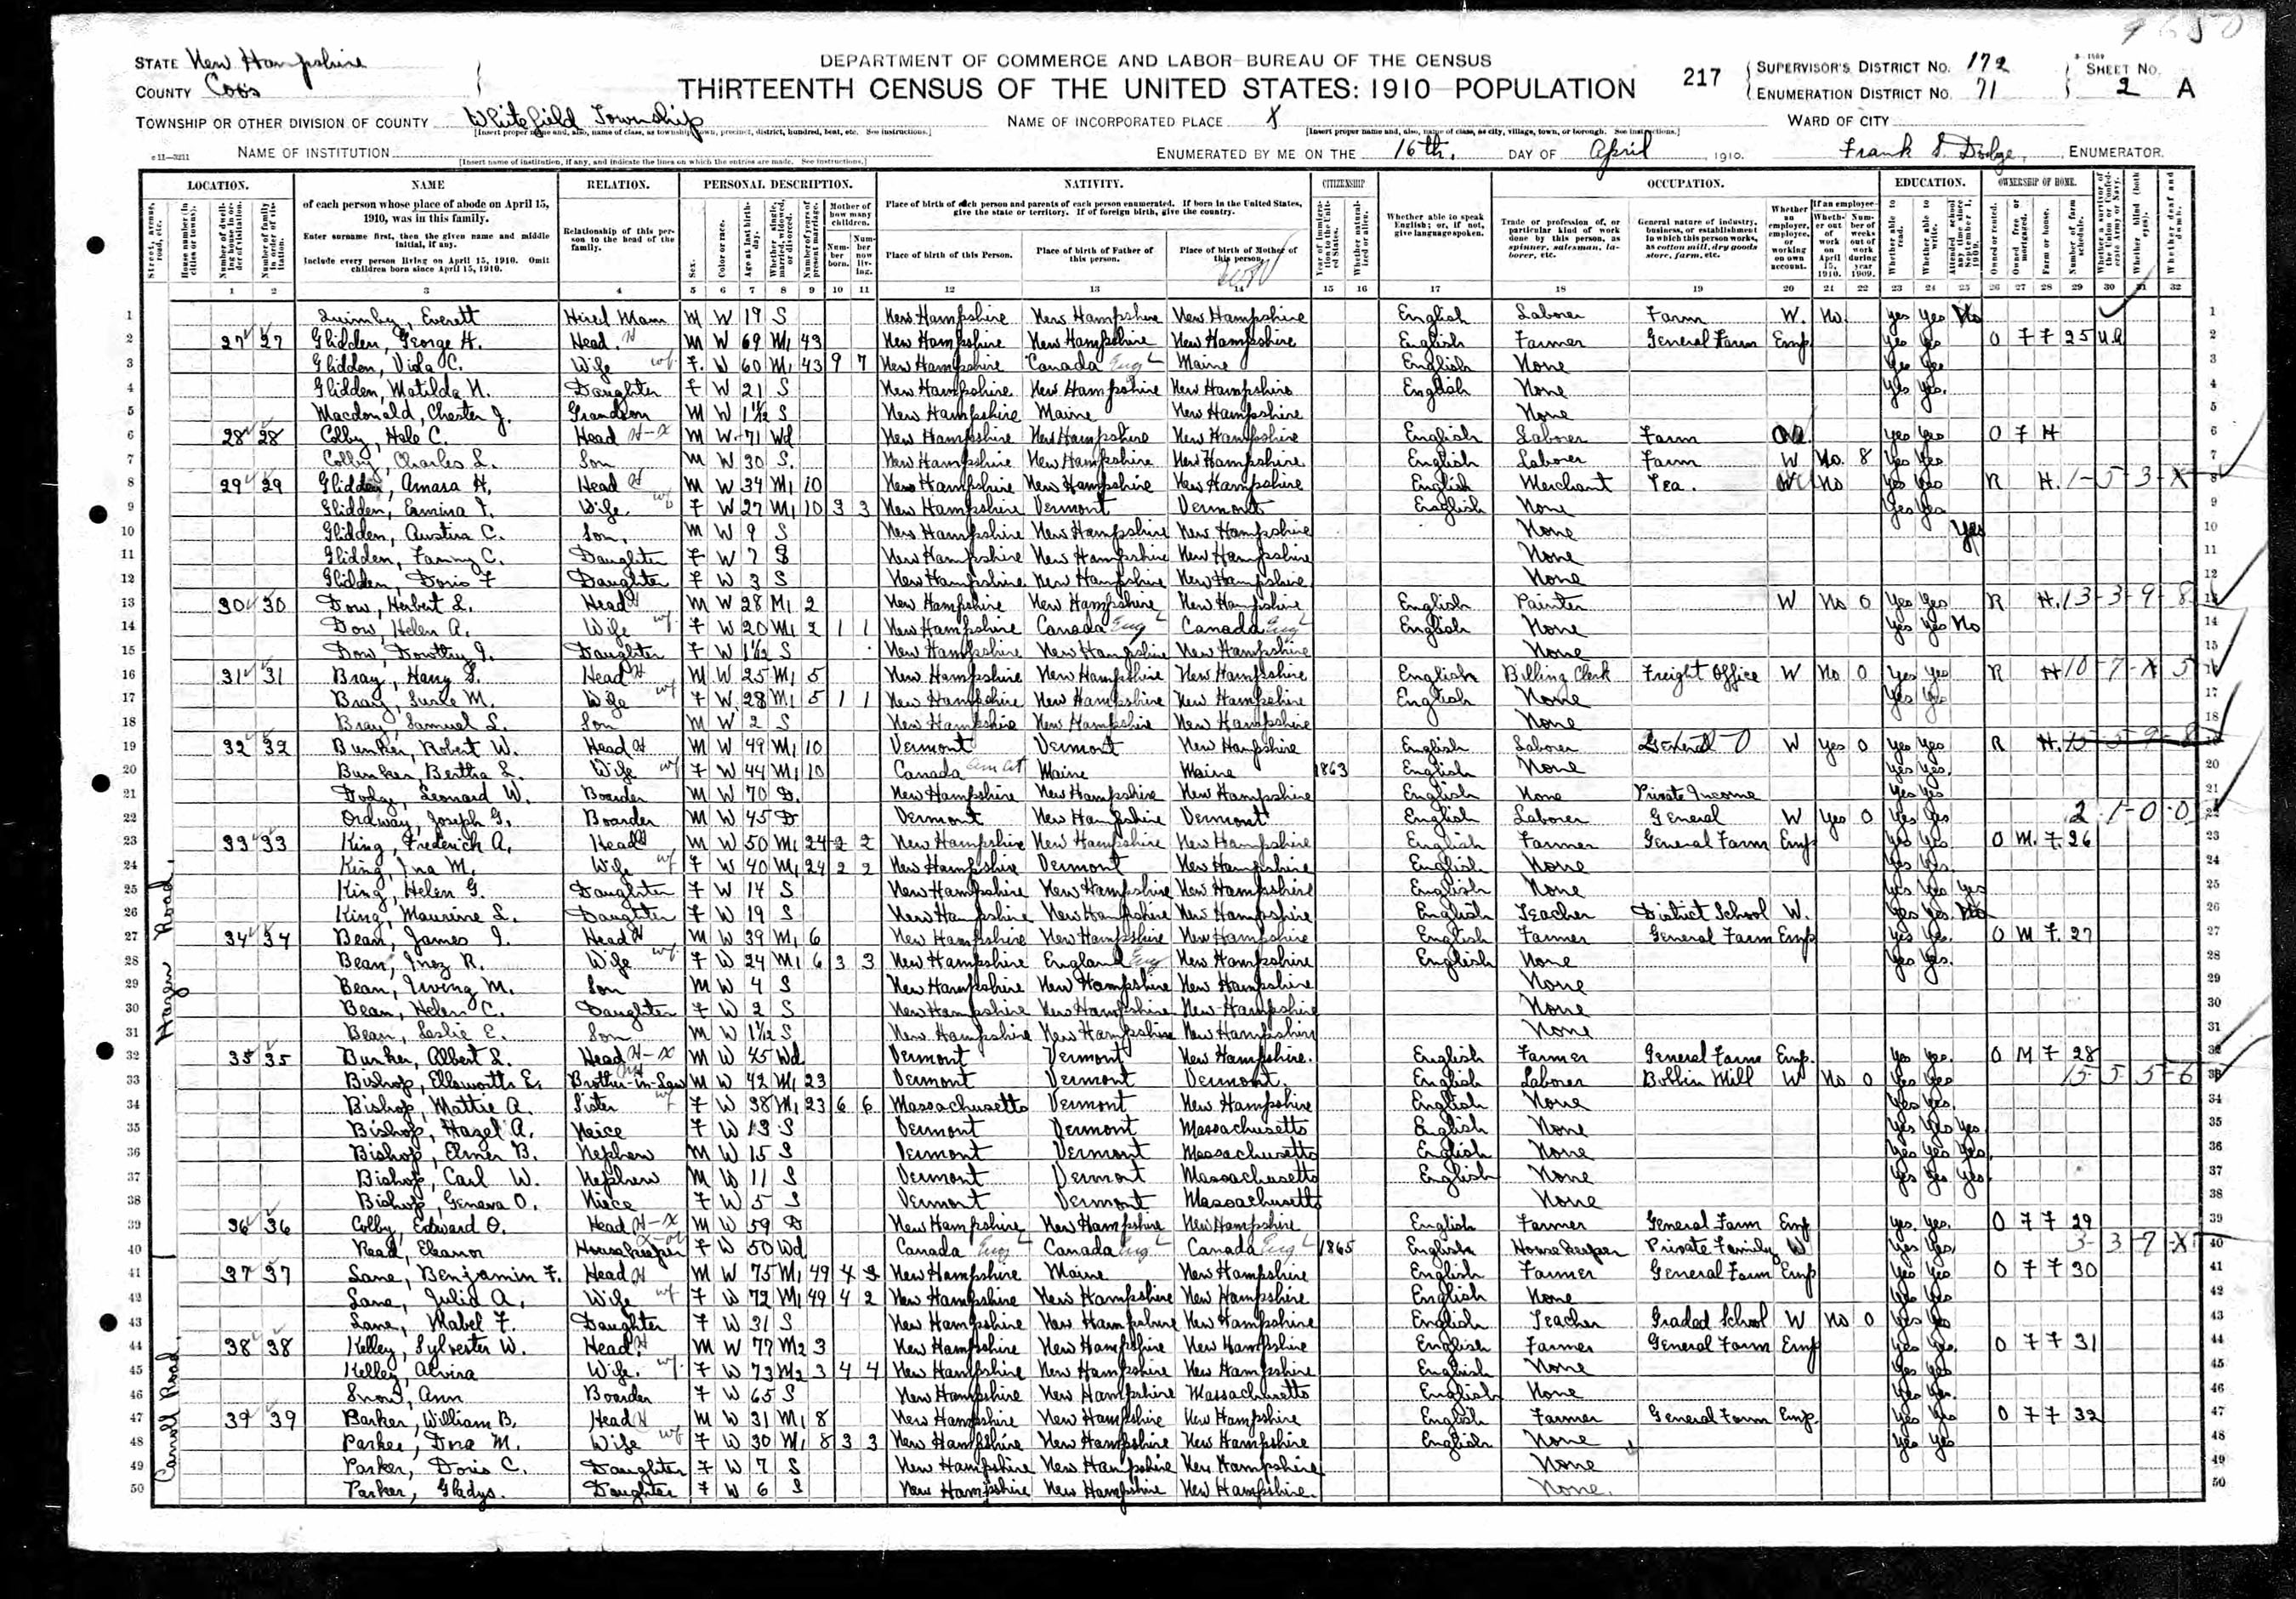 9650
STATE New Hampshire
COUNTY Coos
DEPARTMENT OF COMMERCE AND LABOR-BUREAU OF THE CENSUS
THIRTEENTH CENSUS OF THE UNITED STATES: 1910-POPULATION
217
SUPERVISOR'S DISTRICT NO. 172
ENUMERATION DISTRICT NO. 71
SHEET NO. 2 A
TOWNSHIP OR OTHER DIVISION OF COUNTY Whitefield Township
NAME OF INCORPORATED PLACE X
WARD OF CITY
NAME OF INSTITUTION
[Insert name of institution, if any, and indicate the lines on which the entries are made. See instructions.]
ENUMERATED BY ME ON THE 16th. DAY OF April, 1910.
Frank S. Dodge, ENUMERATOR.
LOCATION. NAME RELATION. PERSONAL DESCRIPTION. NATIVITY. CITIZENSHIP OCCUPATION. EDUCATION. OWNERSHIP OF HOME.
of each person whose place of abode on April 15, 1910, was in this family.
Enter surname first, then the given name and middle initial, if any.
Include every person living on April 15, 1910. Omit children born since April 15, 1910.
Relationship of this person to the head of the family.
Place of birth of each person and parents of each person enumerated. If born in the United States, give the state or territory. If of foreign birth, give the country.
Place of birth of this Person. Place of birth of Father of this person. Place of birth of Mother of this person.
Whether able to speak English; or, if not, give language spoken.
Trade or profession of, or particular kind of work done by this person, as spinner, salesman, laborer, etc.
General nature of industry, business, or establishment in which this person works, as cotton mill, dry goods store, farm, etc.
1 2 3 4 5 6 7 8 9 10 11 12 13 14 15 16 17 18 19 20 21 22 23 24 25 26 27 28 29 30 31 32
1 Quimby, Everett Hired Man M W 19 S New Hampshire New Hampshire New Hampshire English Laborer Farm W. No. Yes Yes No
2 27 27 Glidden, George H. Head M W 69 M1 43 New Hampshire New Hampshire New Hampshire English Farmer General Farm Emp Yes Yes O F F 25 UA
3 Glidden, Viola C. Wife F W 60 M1 43 9 7 New Hampshire Canada Eng Maine English None Yes Yes
4 Glidden, Matilda N. Daughter F W 21 S New Hampshire New Hampshire New Hampshire English None Yes Yes
5 Macdonald, Chester J. Grandson M W S New Hampshire Maine New Hampshire None
6 28 28 Colby, Hale C. Head M W 71 Wd New Hampshire New Hampshire New Hampshire English Laborer Farm OA Yes Yes O F H
7 Colby, Charles L. Son M W 30 S. New Hampshire New Hampshire New Hampshire English Laborer Farm W No. 8 Yes Yes
8 29 29 Glidden, Amasa H. Head M W 34 M1 10 New Hampshire New Hampshire New Hampshire English Merchant Tea. No Yes Yes R H. 1-5-3-X
9 Glidden, Ermina I. Wife F W 27 M1 10 3 3 New Hampshire Vermont Vermont English None Yes Yes
10 Glidden, Austin C. Son. M W 9 S New Hampshire New Hampshire New Hampshire None Yes
11 Glidden, Fanny C. Daughter F W 7 S New Hampshire New Hampshire New Hampshire None
12 Glidden, Doris F Daughter F W 3 S New Hampshire New Hampshire New Hampshire None
13 30 30 Dow, Herbert L. Head M W 28 M1 2 New Hampshire New Hampshire New Hampshire English Painter W No 0 Yes Yes R H. 13-3-9-8
14 Dow, Helen A. Wife F W 20 M1 2 1 1 New Hampshire Canada Eng Canada Eng English None Yes Yes No
15 Dow, Dorothy I. Daughter F W S New Hampshire New Hampshire New Hampshire None
16 31 31 Bray, Harry S. Head M W 25 M1 5 New Hampshire New Hampshire New Hampshire English Billing Clerk Freight Office W No 0 Yes Yes R H 10-7-X 5
17 Bray, Susie M. Wife F W 28 M1 5 1 1 New Hampshire New Hampshire New Hampshire English None Yes Yes
18 Bray, Samuel L. Son M W 2 S New Hampshire New Hampshire New Hampshire None
19 32 32 Bunker, Robert W. Head M W 49 M1 10 Vermont Vermont New Hampshire English Laborer General W Yes 0 Yes Yes R H. 15-5-9-8
20 Bunker, Bertha L. Wife F W 44 M1 10 Canada Am Cit Maine Maine 1863 English None Yes Yes
21 Dodge, Leonard W. Boarder M W 70 D. New Hampshire New Hampshire New Hampshire English None Private Income Yes Yes
22 Ordway, Joseph G. Boarder M W 45 D Vermont New Hampshire Vermont English Laborer General W Yes 0 Yes Yes 2 1-0-0
23 33 33 King, Frederick A. Head M W 50 M1 24 2 2 New Hampshire New Hampshire New Hampshire English Farmer General Farm Emp Yes Yes O M. F. 26
24 King, Ina M. Wife F W 40 M1 24 2 2 New Hampshire Vermont New Hampshire English None Yes Yes
25 King, Helen G. Daughter F W 14 S New Hampshire New Hampshire New Hampshire English None Yes Yes Yes
26 King, Maurine L. Daughter F W 19 S New Hampshire New Hampshire New Hampshire English Teacher District School W. Yes Yes No
27 34 34 Bean, James I. Head M W 39 M1 6 New Hampshire New Hampshire New Hampshire English Farmer General Farm Emp Yes Yes O M F. 27
28 Bean, Inez R. Wife F W 24 M1 6 3 3 New Hampshire England Eng New Hampshire English None Yes Yes
29 Bean, Irving M. Son M W 4 S New Hampshire New Hampshire New Hampshire None
30 Bean, Helen C. Daughter F W 2 S New Hampshire New Hampshire New Hampshire None
31 Bean, Leslie E. Son M W S New Hampshire New Hampshire New Hampshire None
32 35 35 Bunker, Albert L. Head M W 45 Wd Vermont Vermont New Hampshire. English Farmer General Farm Emp. Yes Yes O M F 28
33 Bishop, Ellsworth E. Brother-in-Law M W 42 M1 23 Vermont Vermont Vermont English Laborer Bobbin Mill W No 0 Yes Yes 15-5-5-6
34 Bishop, Mattie A. Sister F W 38 M1 23 6 6 Massachusetts Vermont New Hampshire English None Yes Yes
35 Bishop, Hazel A. Neice F W 13 S Vermont Vermont Massachusetts English None Yes Yes Yes
36 Bishop, Elmer B. Nephew M W 15 S Vermont Vermont Massachusetts English None Yes Yes Yes
37 Bishop, Carl W. Nephew M W 11 S Vermont Vermont Massachusetts English None Yes Yes Yes
38 Bishop, Geneva O. Niece F W 5 S Vermont Vermont Massachusetts None
39 36 36 Colby, Edward O. Head M W 59 D New Hampshire New Hampshire New Hampshire English Farmer General Farm Emp Yes. Yes. O F F 29
40 Read, Eleanor Housekeeper F W 50 Wd Canada Eng Canada Eng Canada Eng 1865 English Housekeeper Private Family W Yes Yes 3-3-7-X
41 37 37 Lane, Benjamin F. Head M W 75 M1 49 New Hampshire Maine New Hampshire English Farmer General Farm Emp Yes Yes O F F 30
42 Lane, Julia A. Wife F W 72 M1 49 4 2 New Hampshire New Hampshire New Hampshire English None Yes Yes
43 Lane, Mabel F. Daughter F W 31 S New Hampshire New Hampshire New Hampshire English Teacher Graded School W No 0 Yes Yes
44 38 38 Kelley, Sylvester W. Head M W 77 M2 3 New Hampshire New Hampshire New Hampshire English Farmer General Farm Emp Yes Yes O F F 31
45 Kelley, Alvira Wife. F W 73 M2 3 4 4 New Hampshire New Hampshire New Hampshire English None Yes Yes
46 Snow, Ann Boarder F W 65 S New Hampshire New Hampshire Massachusetts English None Yes Yes
47 39 39 Parker, William B. Head M W 31 M1 8 New Hampshire New Hampshire New Hampshire English Farmer General Farm Emp. Yes Yes O F F 32
48 Parker, Dora M. Wife F W 30 M1 8 3 3 New Hampshire New Hampshire New Hampshire English None Yes Yes
49 Parker, Doris C. Daughter F W 7 S New Hampshire New Hampshire New Hampshire None
50 Parker, Gladys. Daughter F W 6 S New Hampshire New Hampshire New Hampshire. None.
Hazen Road
Carroll Road